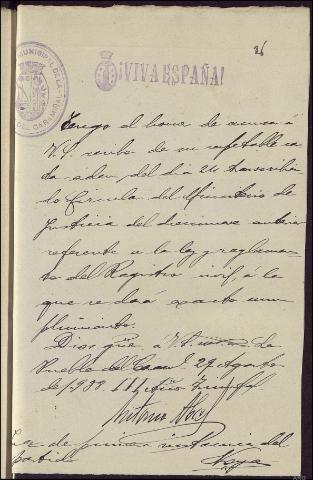 26
MUNICIPAL DE LA
DEL CARAMIÑAL
¡VIVA ESPAÑA!
Tengo el honor de acusar á
V.S. recibo de su respetable co
del día 24 transcribien
do Circular del Ministerio de
Justicia del diecinueve anterior
referente a la ley y reglamen
to del Registro civil, á la
que se dará exacto cum
plimiento.
Dios gûe. a V.S. m
Puebla del Caram. 29 Agosto
de 1939. III Año Triunfal
Antonio
Juez de primera instancia del
partido
Noya